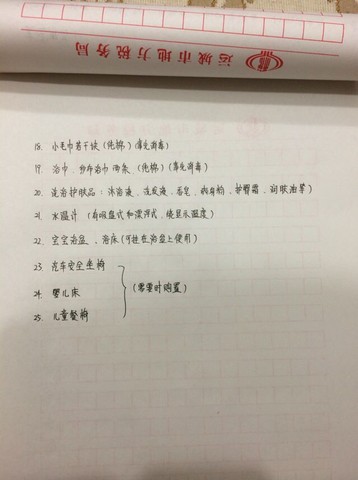 运城市地方税务局
18. 小毛巾若干块 (纯棉) (事先消毒)
19. 浴巾、纱布浴巾两条 (纯棉) (事先消毒)
20. 洗浴护肤品: 沐浴液、洗发液、香皂、爽身粉、护臀霜、润肤油等)
21. 水温计 (有吸盘式和漂浮式, 能显示温度)
22. 宝宝浴盆、浴床 (可挂在浴盆上使用)
23. 汽车安全坐椅
24. 婴儿床 (需要时购置)
25. 儿童餐椅